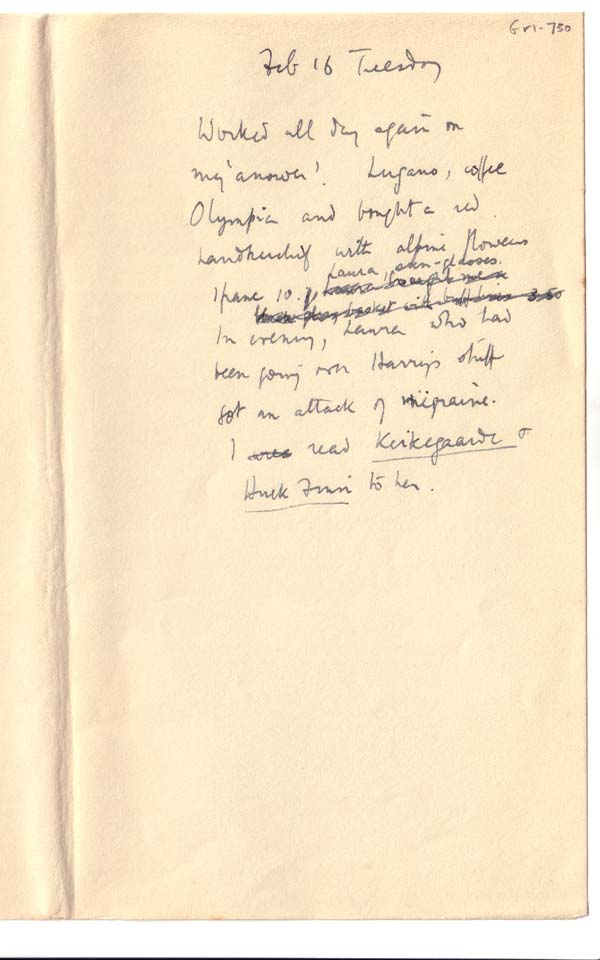 Gr1-750
Feb 16 Tuesday
Worked all day again on
my 'answer'. Lugano, coffee
Olympia and bought a red
handkerchief with alpine flowers
1 franc 10. Laura, sun-glasses.
3.50
In evening, Laura who had
been going over Harry's stuff
got an attack of migraine.
I read Keikegaarde &
Huck Finn to her.